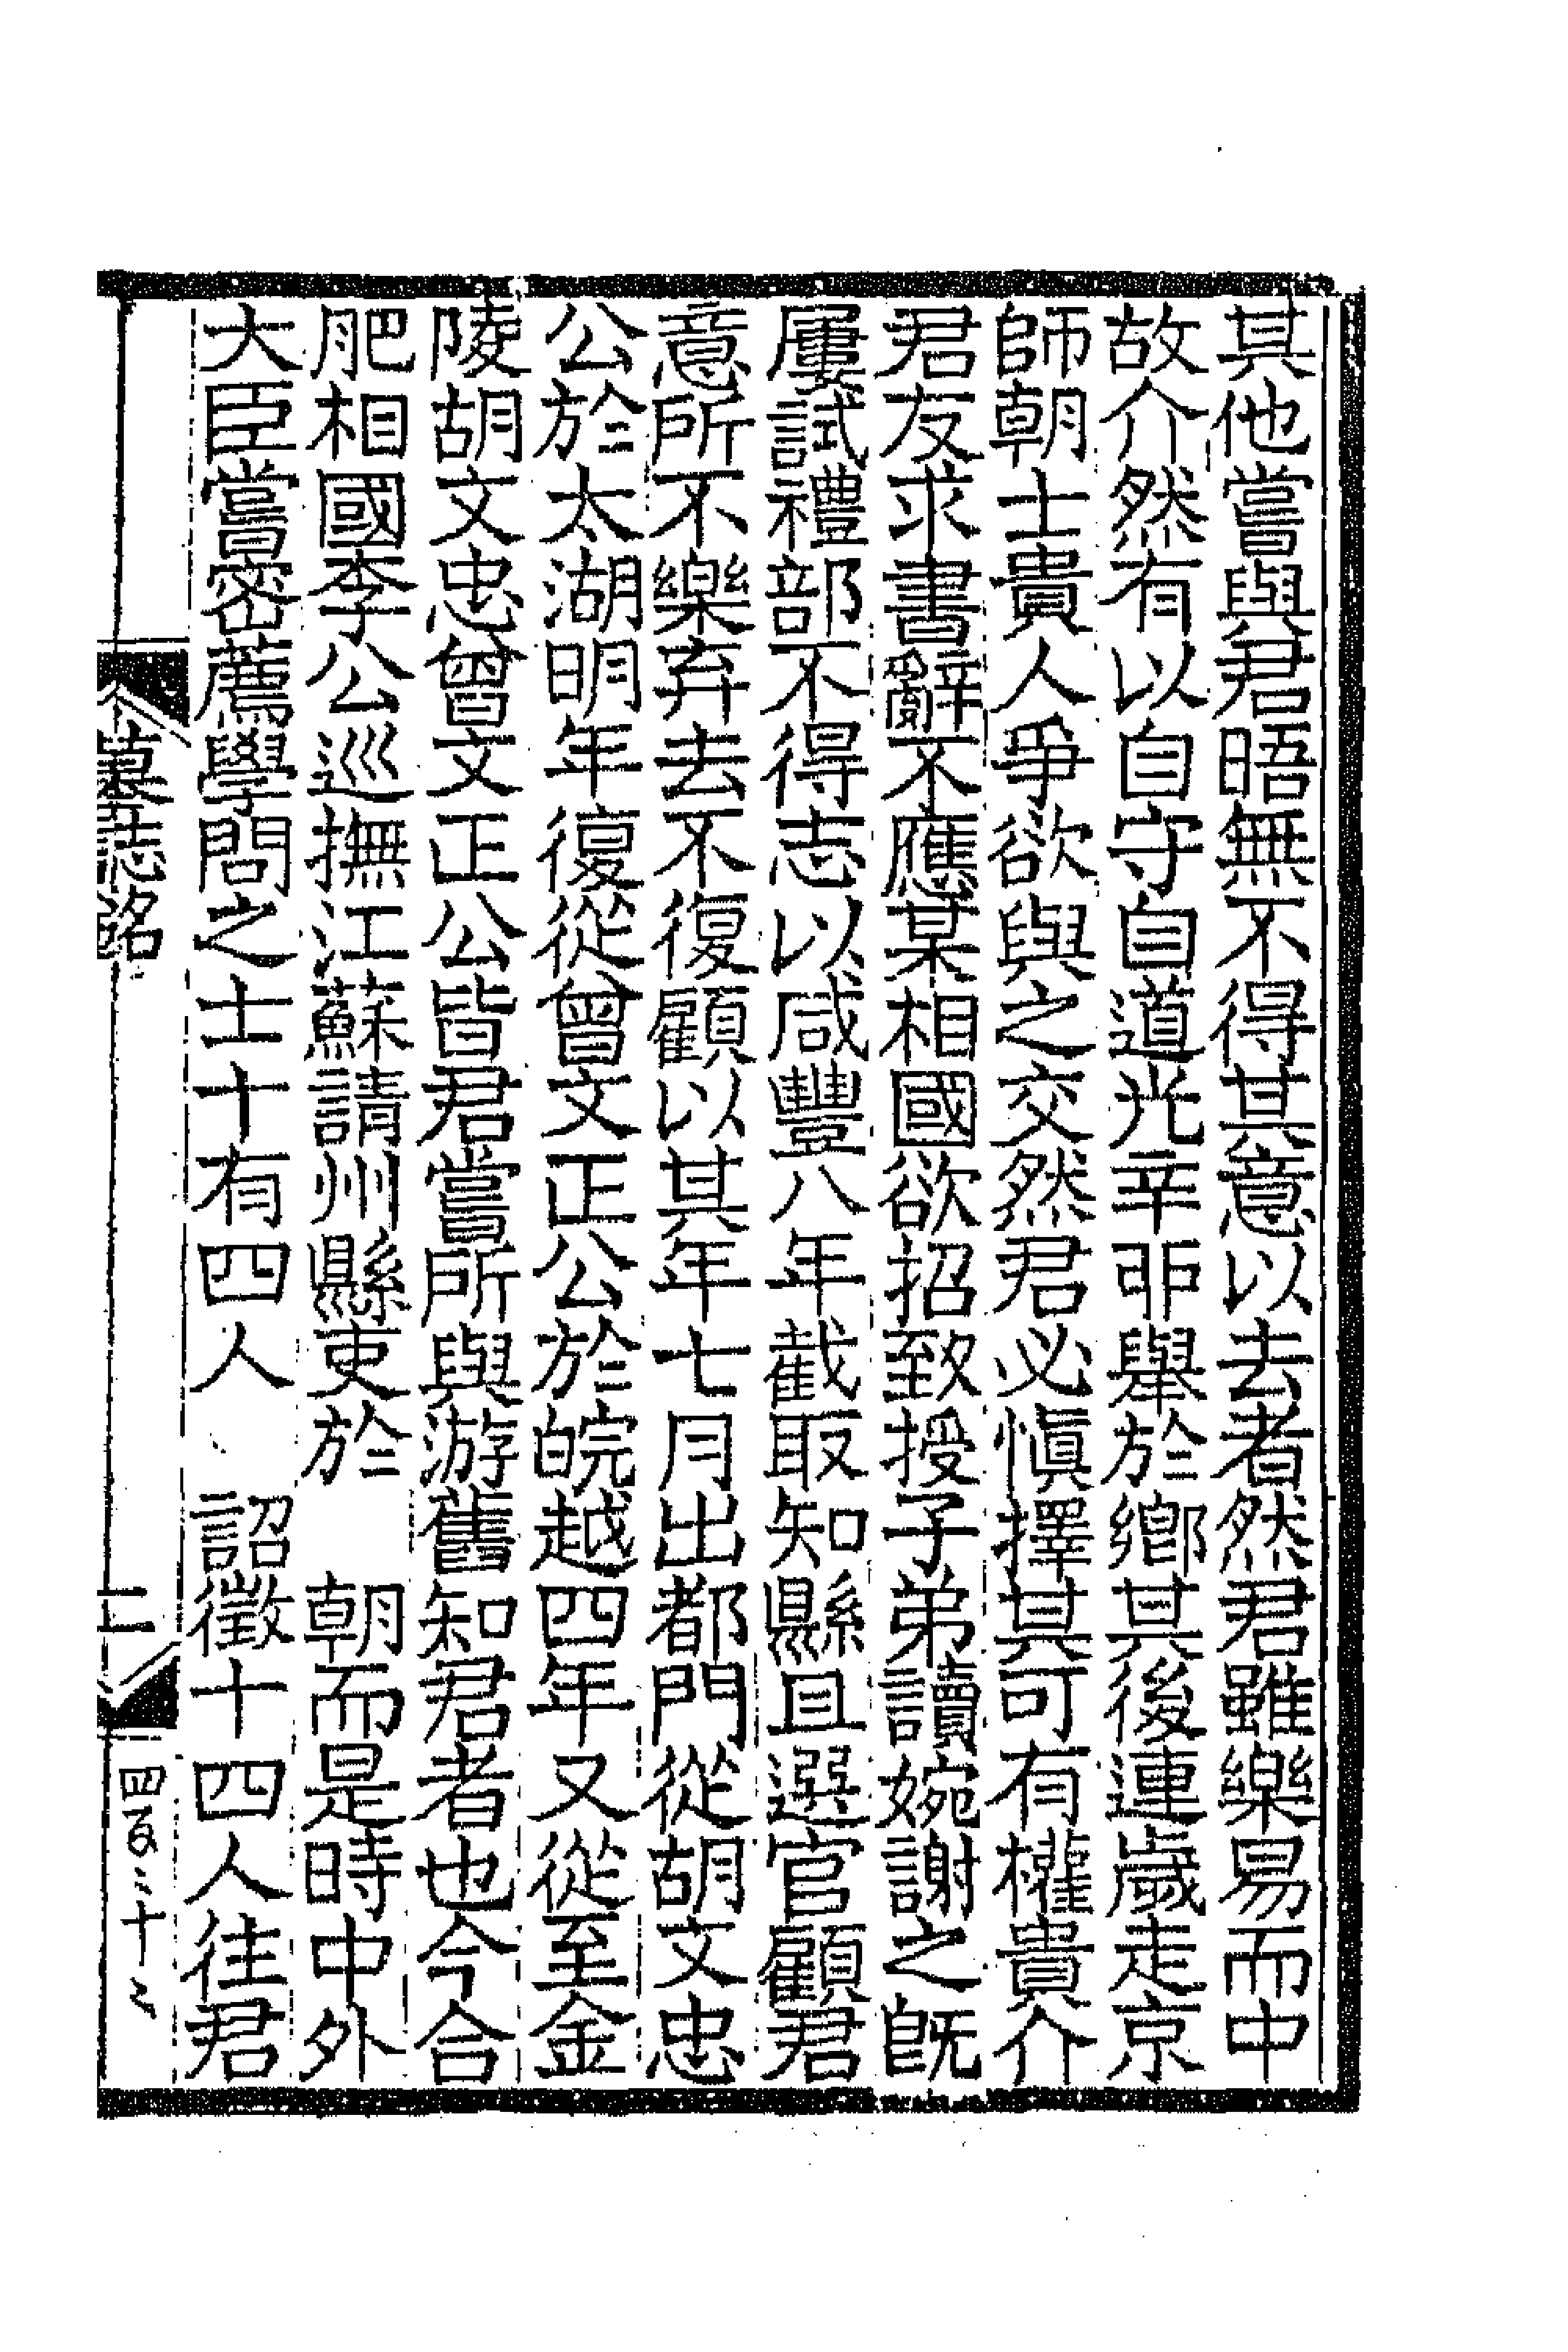 其他嘗與君晤無不得其意以去者然君雖樂易而中
故介然有以自守自道光辛卯舉於鄉其後連歲走京
師朝士貴人爭欲與之交然君必慎擇其可有權貴介
君友求書辭不應某相國欲招致授子弟讀婉謝之既
屢試禮部不得志以咸豐八年截取知縣且選官顧君
意所不樂弃去不復顧以其年七月出都門從胡文忠
公於太湖明年復從曾文正公於皖越四年又從至金
陵胡文忠曾文正公皆君嘗所與游舊知君者也今合
肥相國李公巡撫江蘇請州縣吏於 朝而是時中外
大臣嘗密薦學問之士十有四人 詔徵十四人往君
墓誌銘
二
四頁三十二